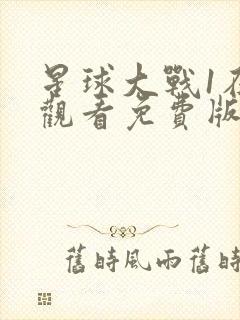 星球大戰1在
觀看免費版
舊時風雨舊時